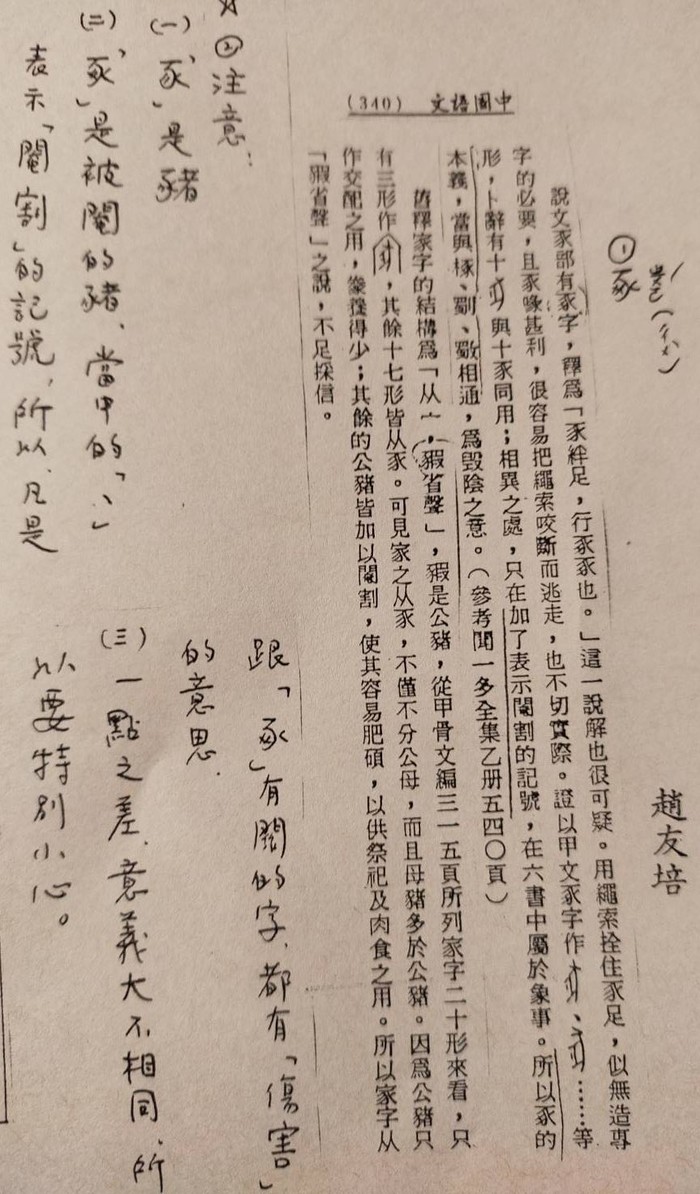 中國語文 （340）
趙友培
①豖
說文豕部有豖字，釋爲「豕絆足，行豖豖也。」這一說解也很可疑。用繩索拴住豕足，似無造專
字的必要，且豕喙甚利，很容易把繩索咬斷而逃走，也不切實際。證以甲文豖字作、……等
形，卜辭有十與十豕同用；相異之處，只在加了表示閹割的記號，在六書中屬於象事。所以豖的
本義，當與椓、劅、斀相通，爲毀陰之意。（參考聞一多全集乙册五四〇頁）
舊釋家字的結構爲「从宀，豭省聲」，豭是公豬，從甲骨文編三一五頁所列家字二十形來看，只
有三形作，其餘十七形皆从豕。可見家之从豕，不僅不分公母，而且母豬多於公豬。因爲公豬只
作交配之用，豢養得少；其餘的公豬皆加以閹割，使其容易肥碩，以供祭祀及肉食之用。所以家字从
「豭省聲」之說，不足採信。
☆②注意：
(一)「豕」是豬
(二)「豖」是被閹的豬、當中的「丶」
表示「閹割」的記號，所以、凡是
跟「豖」有關的字、都有「傷害」
的意思.
(三)一點之差、意義大不相同、所
以要特別小心。